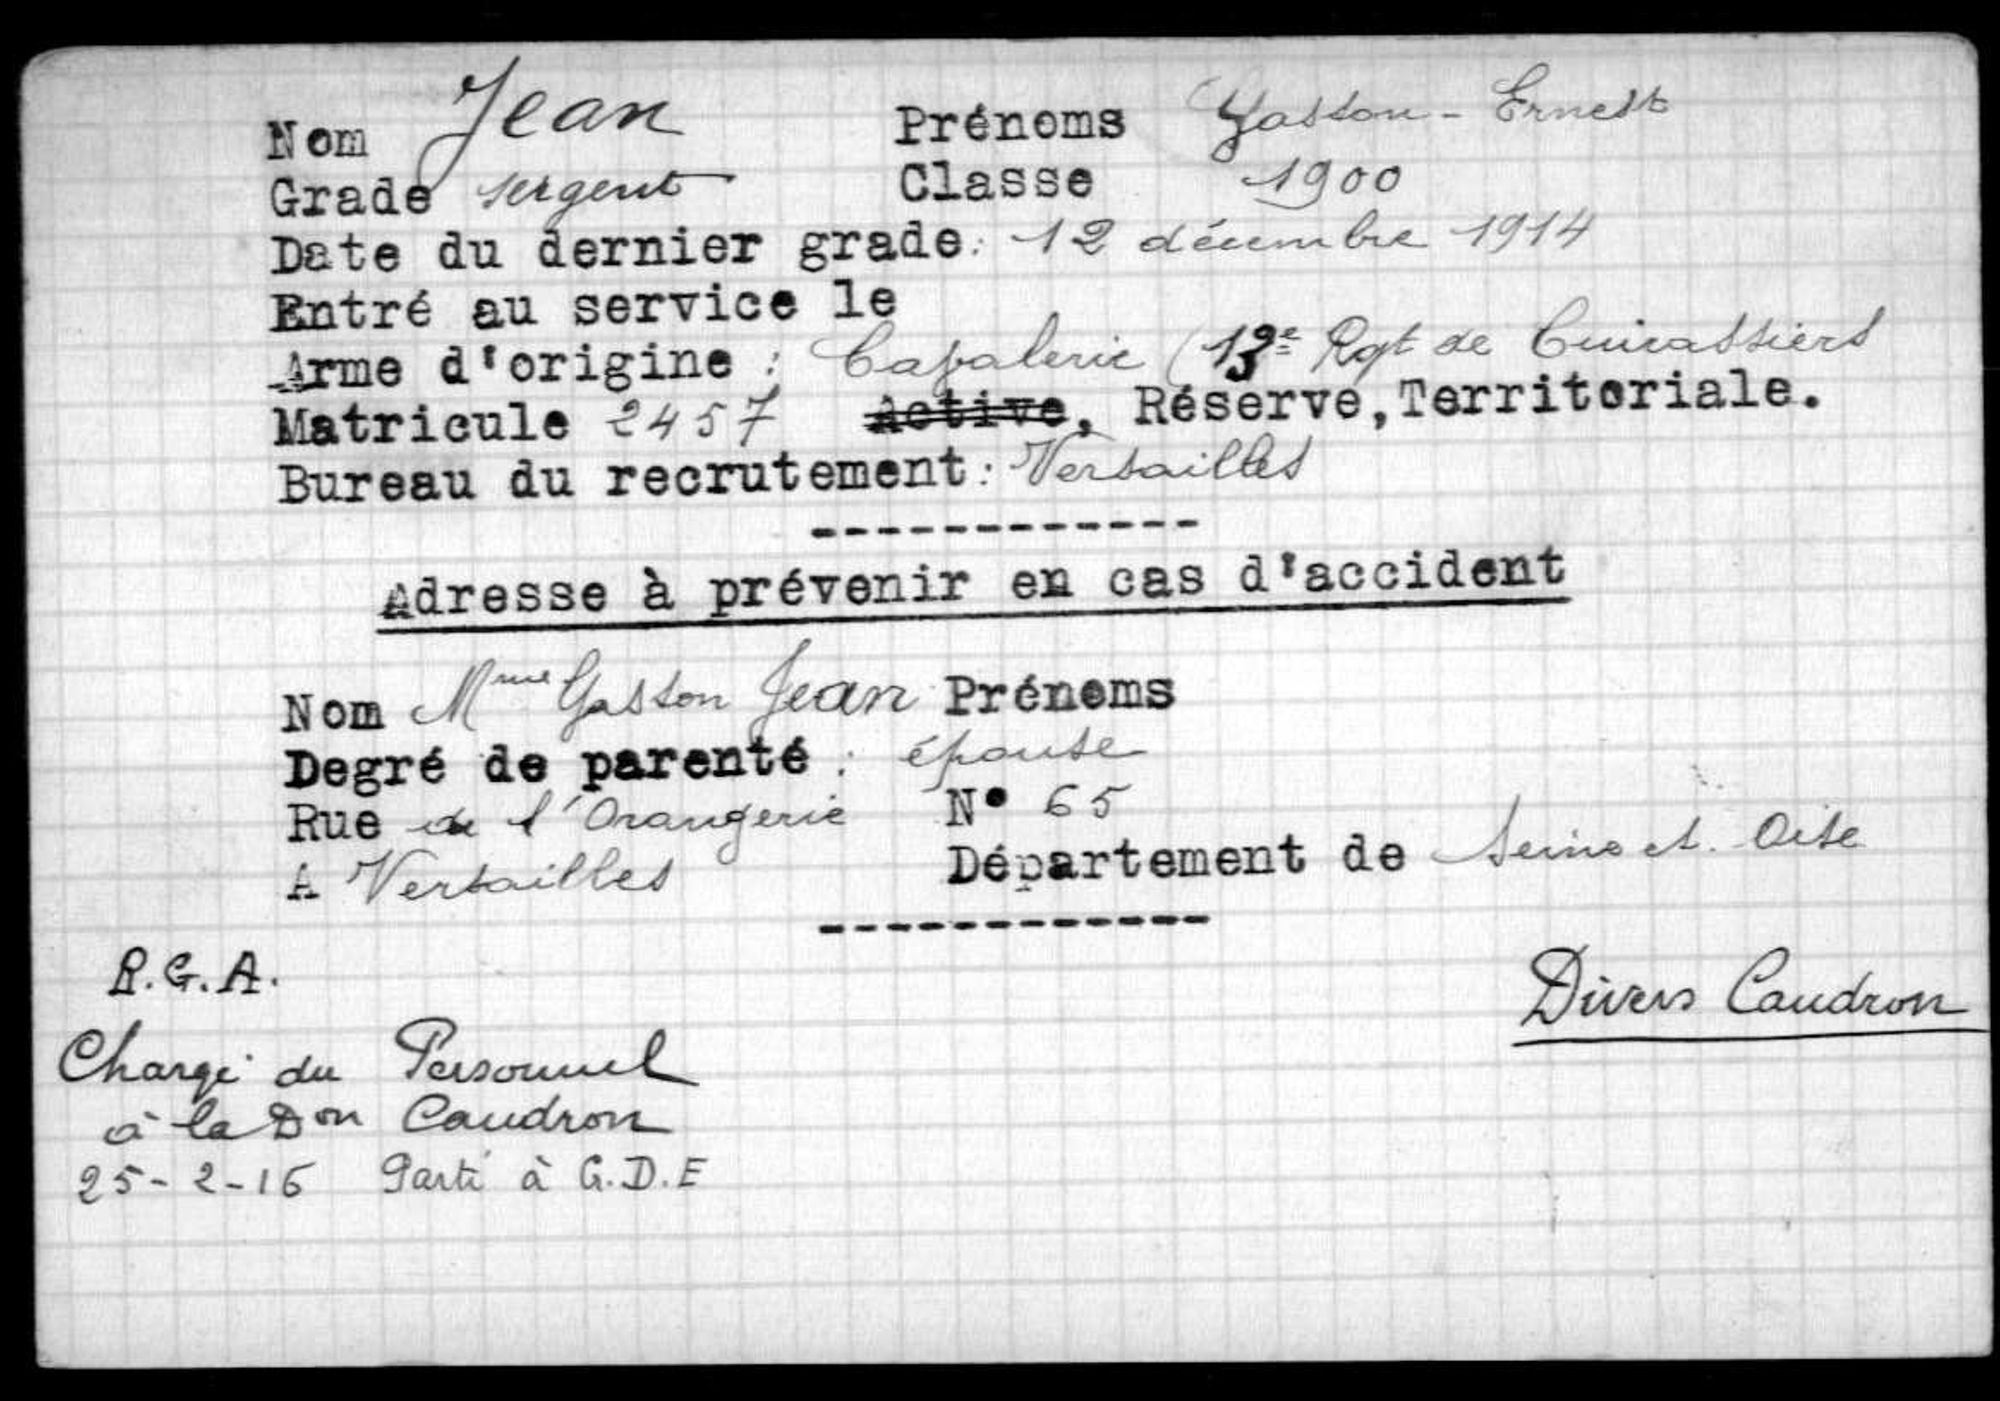 Nom Jean Prénoms Gaston - Ernest
Grade sergent Classe 1900
Date du dernier grade: 12 décembre 1914
Entré au service le
Arme d'origine : Cavalerie (13e Rgt de Cuirassiers
Matricule 2457 Active, Réserve, Territoriale.
Bureau du recrutement: Versailles
------------
Adresse à prévenir en cas d'accident
Nom Mme Gaston Jean Prénoms
Degré de parenté : épouse
Rue de l'Orangerie N° 65
A Versailles Département de Seine et. Oise
------------
R.G.A.
Divers Caudron
Chargé du Personnel
à la Don Caudron
25-2-16 Parti à G.D.E